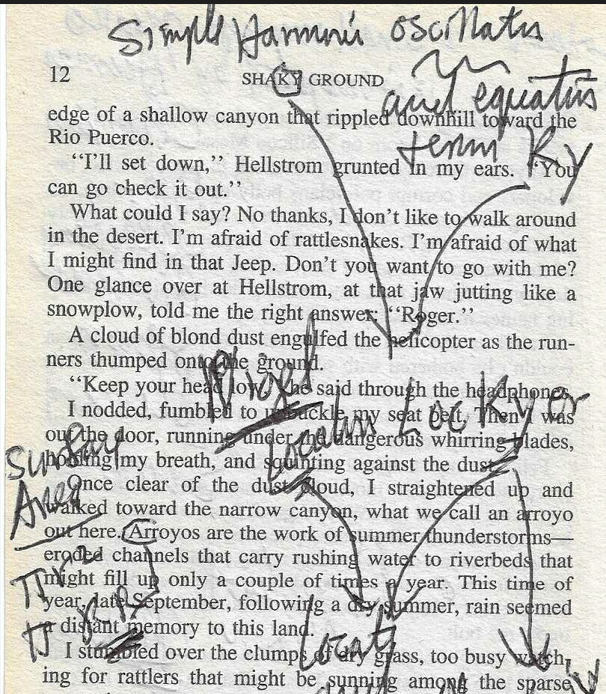 Simple Harmonic oscillator
12 SHAKY GROUND
and equation
term Ky
edge of a shallow canyon that rippled downhill toward the
Rio Puerco.
“I’ll set down,” Hellstrom grunted in my ears. “You
can go check it out.”
What could I say? No thanks, I don’t like to walk around
in the desert. I’m afraid of rattlesnakes. I’m afraid of what
I might find in that Jeep. Don’t you want to go with me?
One glance over at Hellstrom, at that jaw jutting like a
snowplow, told me the right answer: “Roger.”
A cloud of blond dust engulfed the helicopter as the run-
ners thumped onto the ground.
Nigel
“Keep your head low,” he said through the headphones.
I nodded, fumbled to unbuckle my seat belt. Then I was
Location Lockyer
out the door, running under the dangerous whirring blades,
holding my breath, and squinting against the dust.
Surface
Area
Once clear of the dust cloud, I straightened up and
walked toward the narrow canyon, what we call an arroyo
out here. Arroyos are the work of summer thunderstorms—
eroded channels that carry rushing water to riverbeds that
might fill up only a couple of times a year. This time of
year, late September, following a dry summer, rain seemed
a distant memory to this land.
Locate
I stumbled over the clumps of dry grass, too busy watch-
ing for rattlers that might be sunning among the sparse